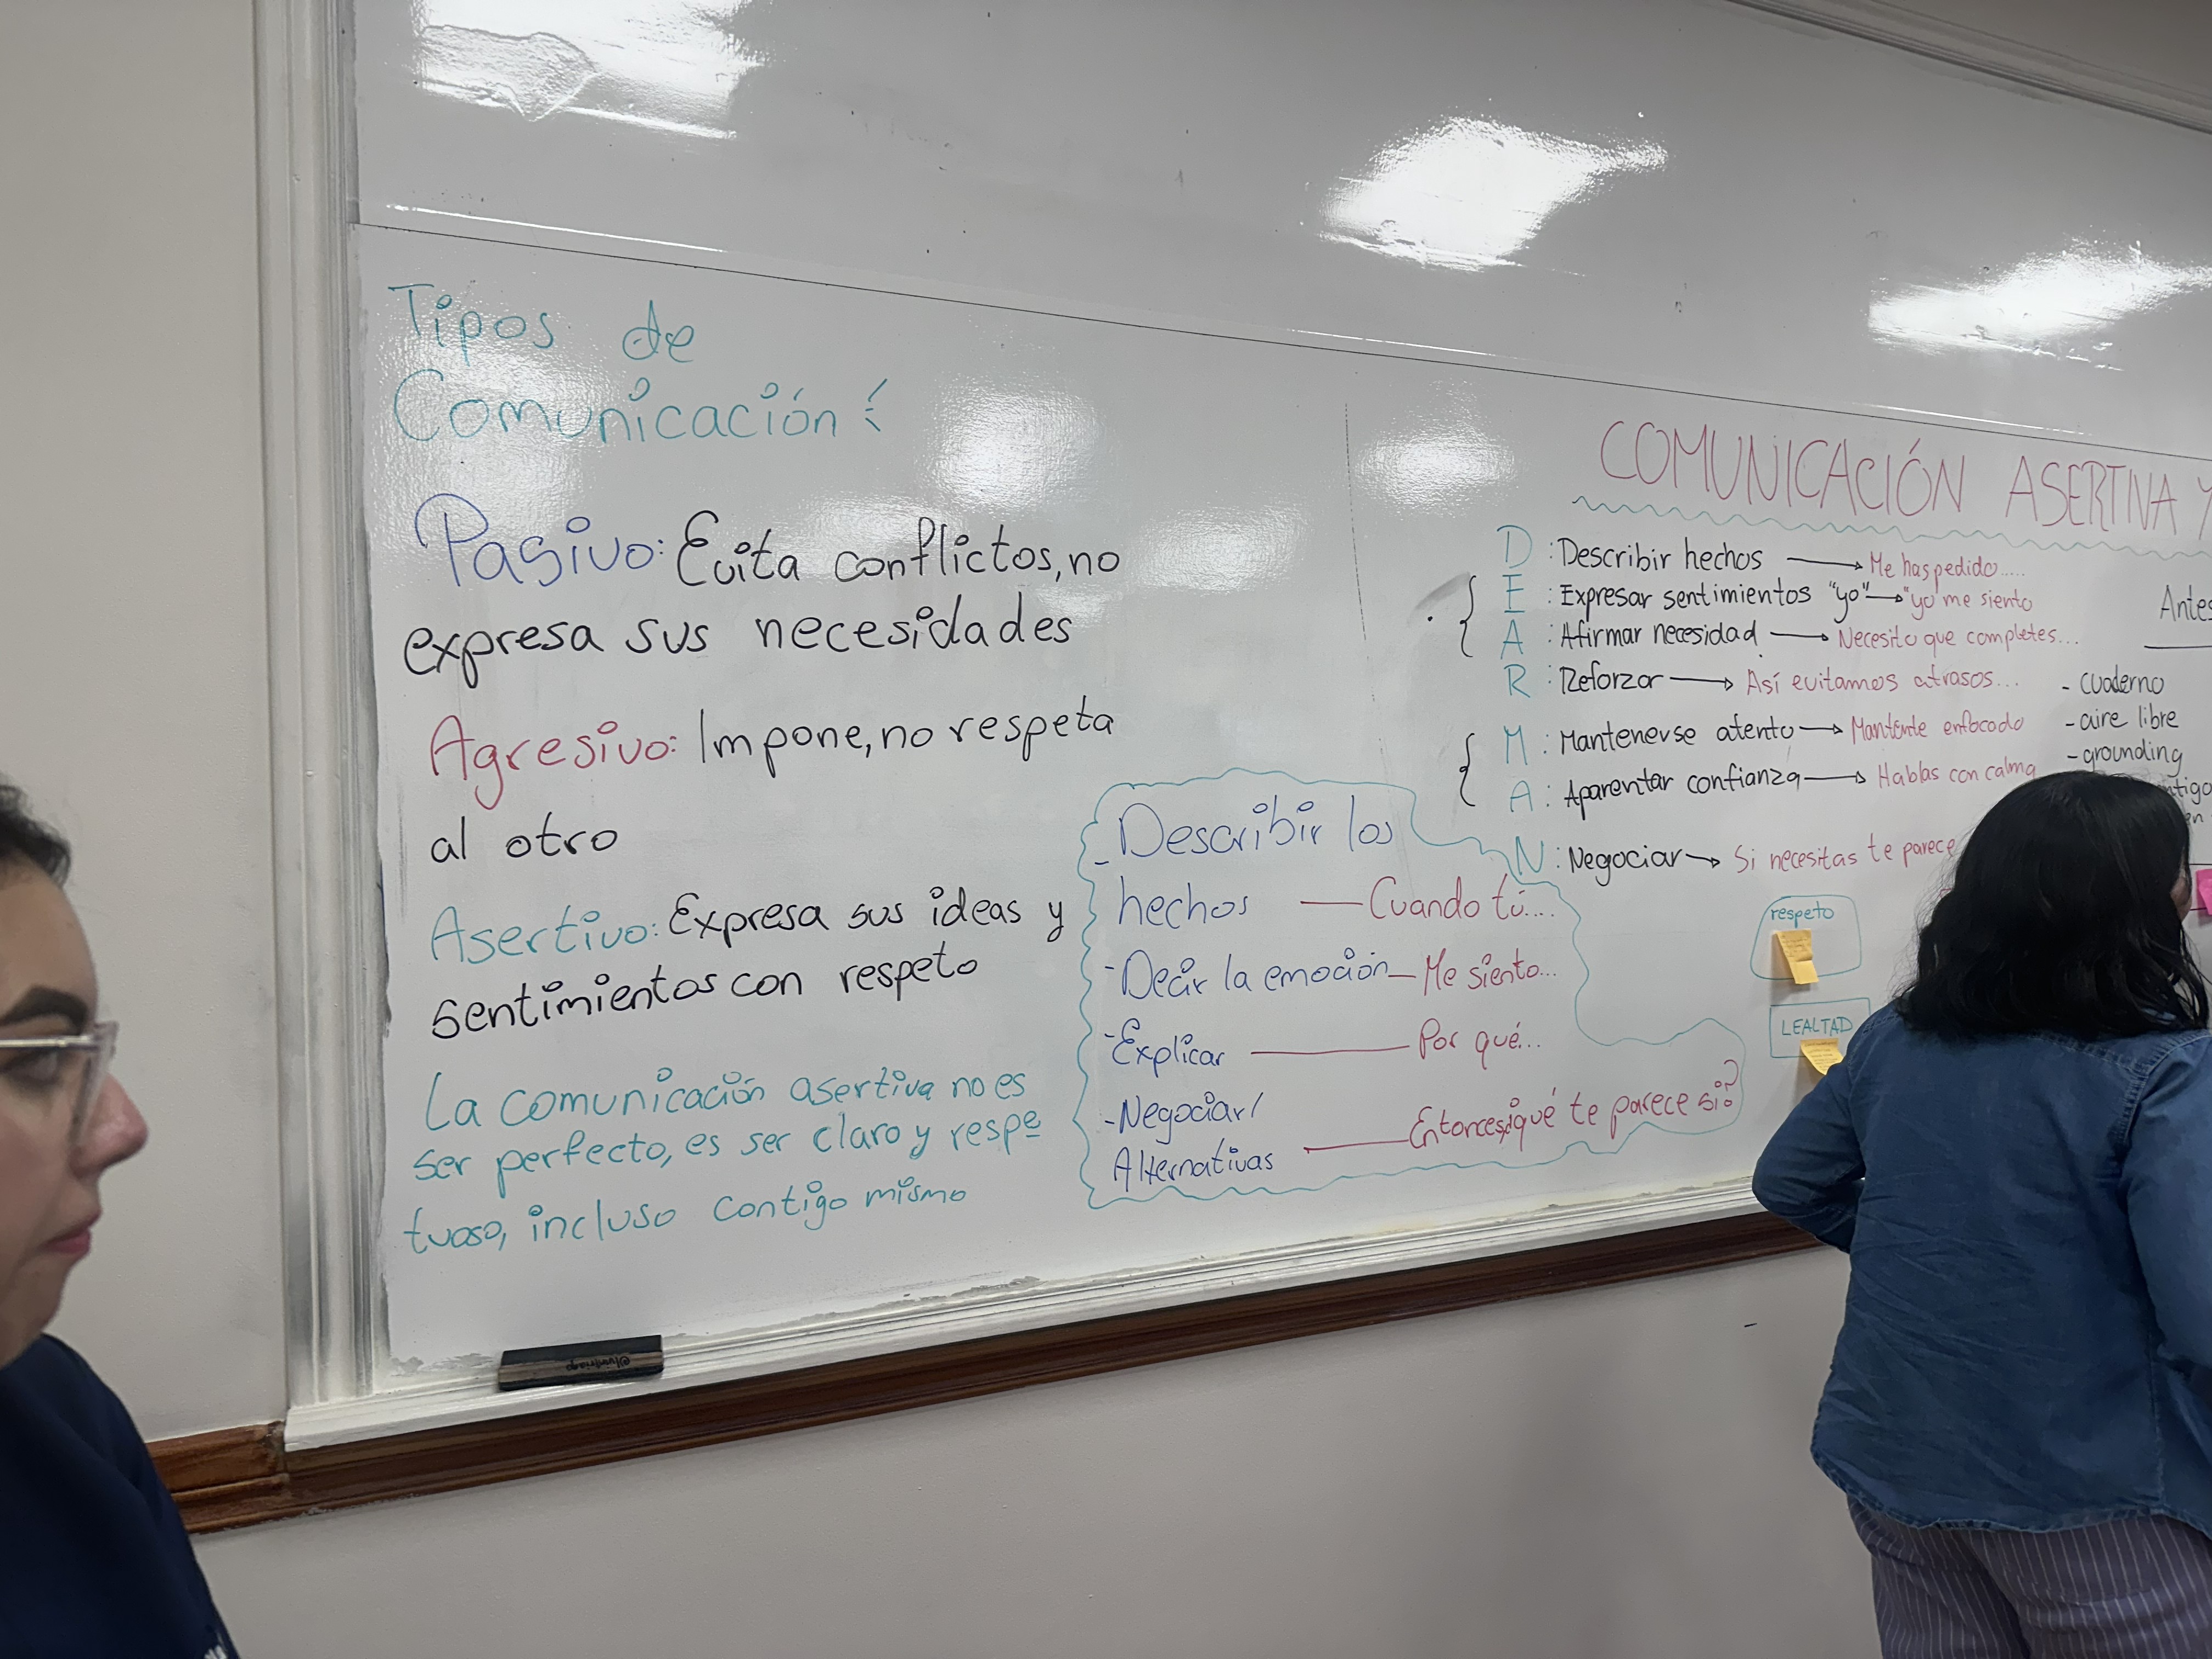 Tipos de
Comunicación:
Pasivo: Evita conflictos, no
expresa sus necesidades
Agresivo: Impone, no respeta
al otro
Asertivo: Expresa sus ideas y
sentimientos con respeto
La comunicación asertiva no es
ser perfecto, es ser claro y respe
tuoso, incluso contigo mismo
- Describir los
hechos — Cuando tú....
- Decir la emoción — Me siento...
- Explicar — Por qué...
- Negociar/
Alternativas — Entonces ¿qué te parece si?
COMUNICACIÓN ASERTIVA Y
D : Describir hechos → Me has pedido.....
E : Expresar sentimientos "yo" → "yo me siento
A : Afirmar necesidad → Necesito que completes...
R : Reforzar → Así evitamos atrasos...
M : Mantenerse atento → Mantente enfocado
A : Aparentar confianza → Hablas con calma
N : Negociar → Si necesitas te parece
respeto
LEALTAD
Antes
- cuaderno
- aire libre
- grounding